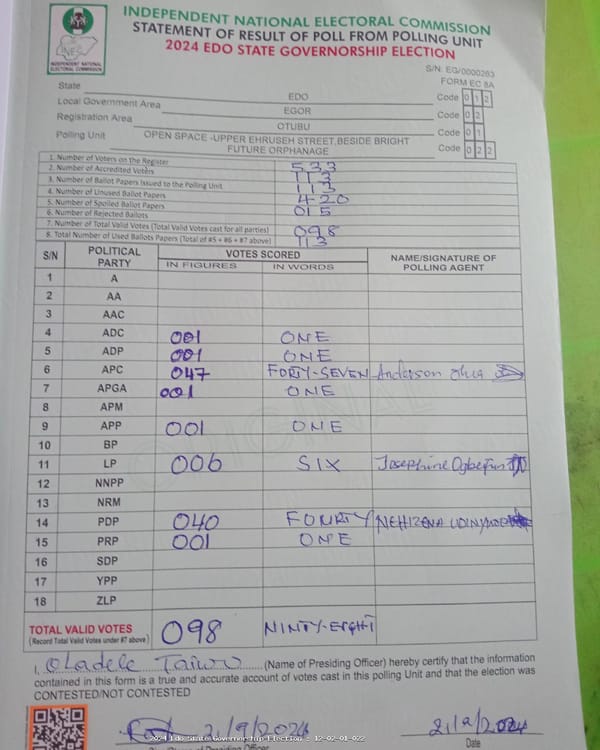 INDEPENDENT NATIONAL ELECTORAL COMMISSION
STATEMENT OF RESULT OF POLL FROM POLLING UNIT
2024 EDO STATE GOVERNORSHIP ELECTION
INEC
INDEPENDENT NATIONAL
ELECTORAL COMMISSION
S/N: EG/0000263
FORM EC 8A
State EDO Code 0 1 2
Local Government Area EGOR Code 0 2
Registration Area OTUBU Code 0 1
Polling Unit OPEN SPACE -UPPER EHRUSEH STREET,BESIDE BRIGHT FUTURE ORPHANAGE Code 0 2 2
1. Number of Voters on the Register 533
2. Number of Accredited Voters 113
3. Number of Ballot Papers Issued to the Polling Unit 113
4. Number of Unused Ballot Papers 420
5. Number of Spoiled Ballot Papers
6. Number of Rejected Ballots 015
7. Number of Total Valid Votes (Total Valid Votes cast for all parties) 098
8. Total Number of Used Ballots Papers (Total of #5 + #6 + #7 above) 113
S/N POLITICAL PARTY VOTES SCORED NAME/SIGNATURE OF POLLING AGENT
IN FIGURES IN WORDS
1 A
2 AA
3 AAC
4 ADC 001 ONE
5 ADP 001 ONE
6 APC 047 FORTY-SEVEN Anderson
7 APGA 001 ONE
8 APM
9 APP 001 ONE
10 BP
11 LP 006 SIX Josephine
12 NNPP
13 NRM
14 PDP 040 FOURTY
15 PRP 001 ONE
16 SDP
17 YPP
18 ZLP
TOTAL VALID VOTES 098 NINTY-EIGHT
(Record Total Valid Votes under #7 above)
I, Oladele Taiwo (Name of Presiding Officer) hereby certify that the information
contained in this form is a true and accurate account of votes cast in this polling Unit and that the election was
CONTESTED/NOT CONTESTED
21/9/2024 21/9/2024
2024 Edo State Governorship Election : 12-02-01-022
Date